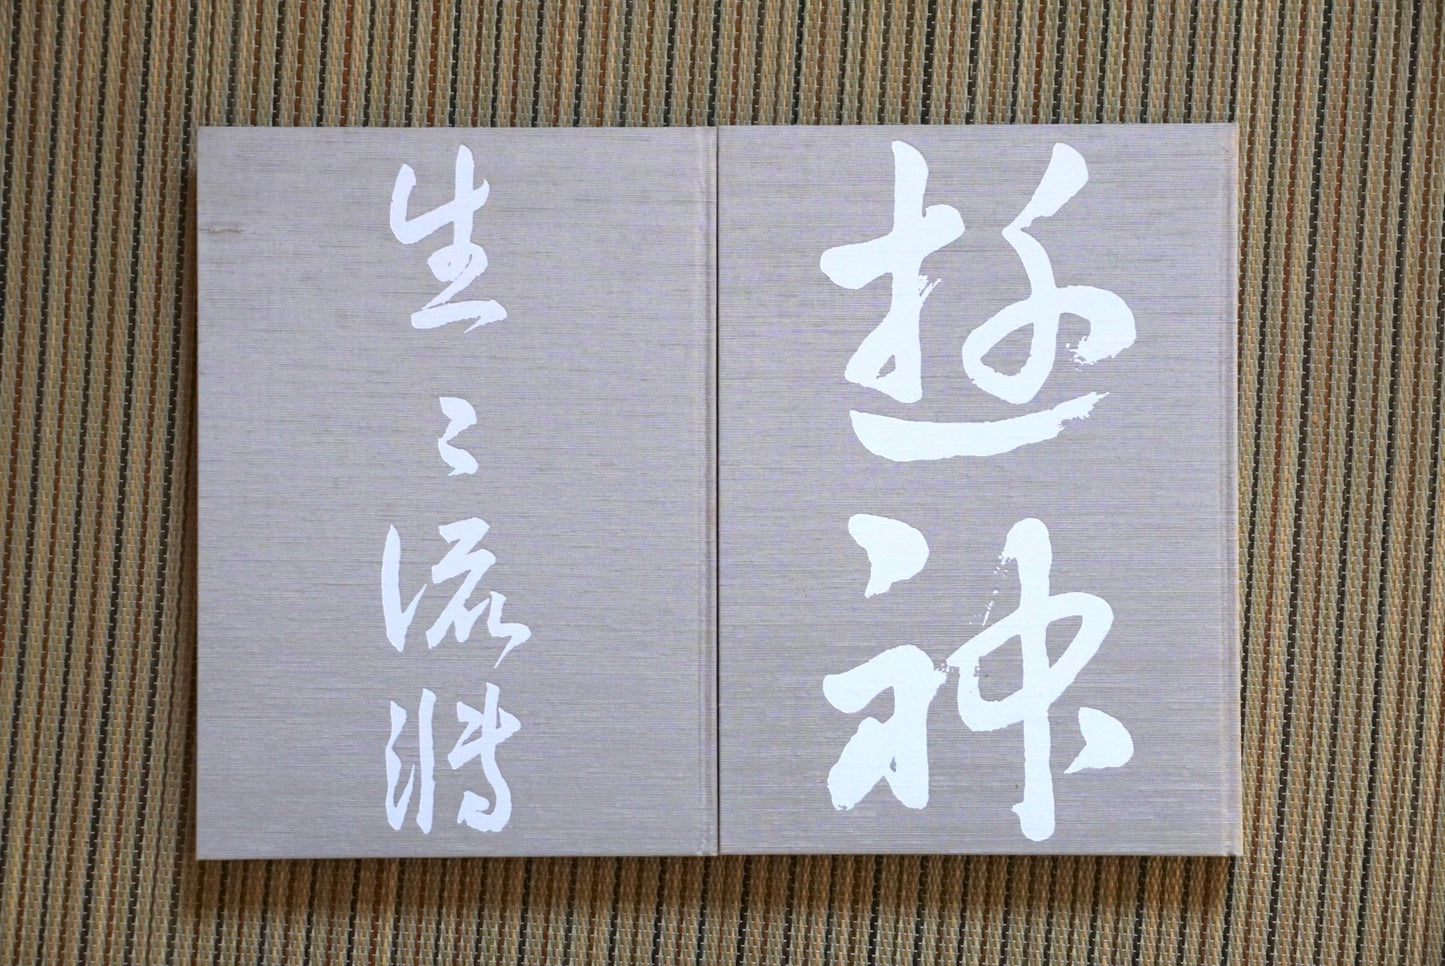 遊神
生々流轉